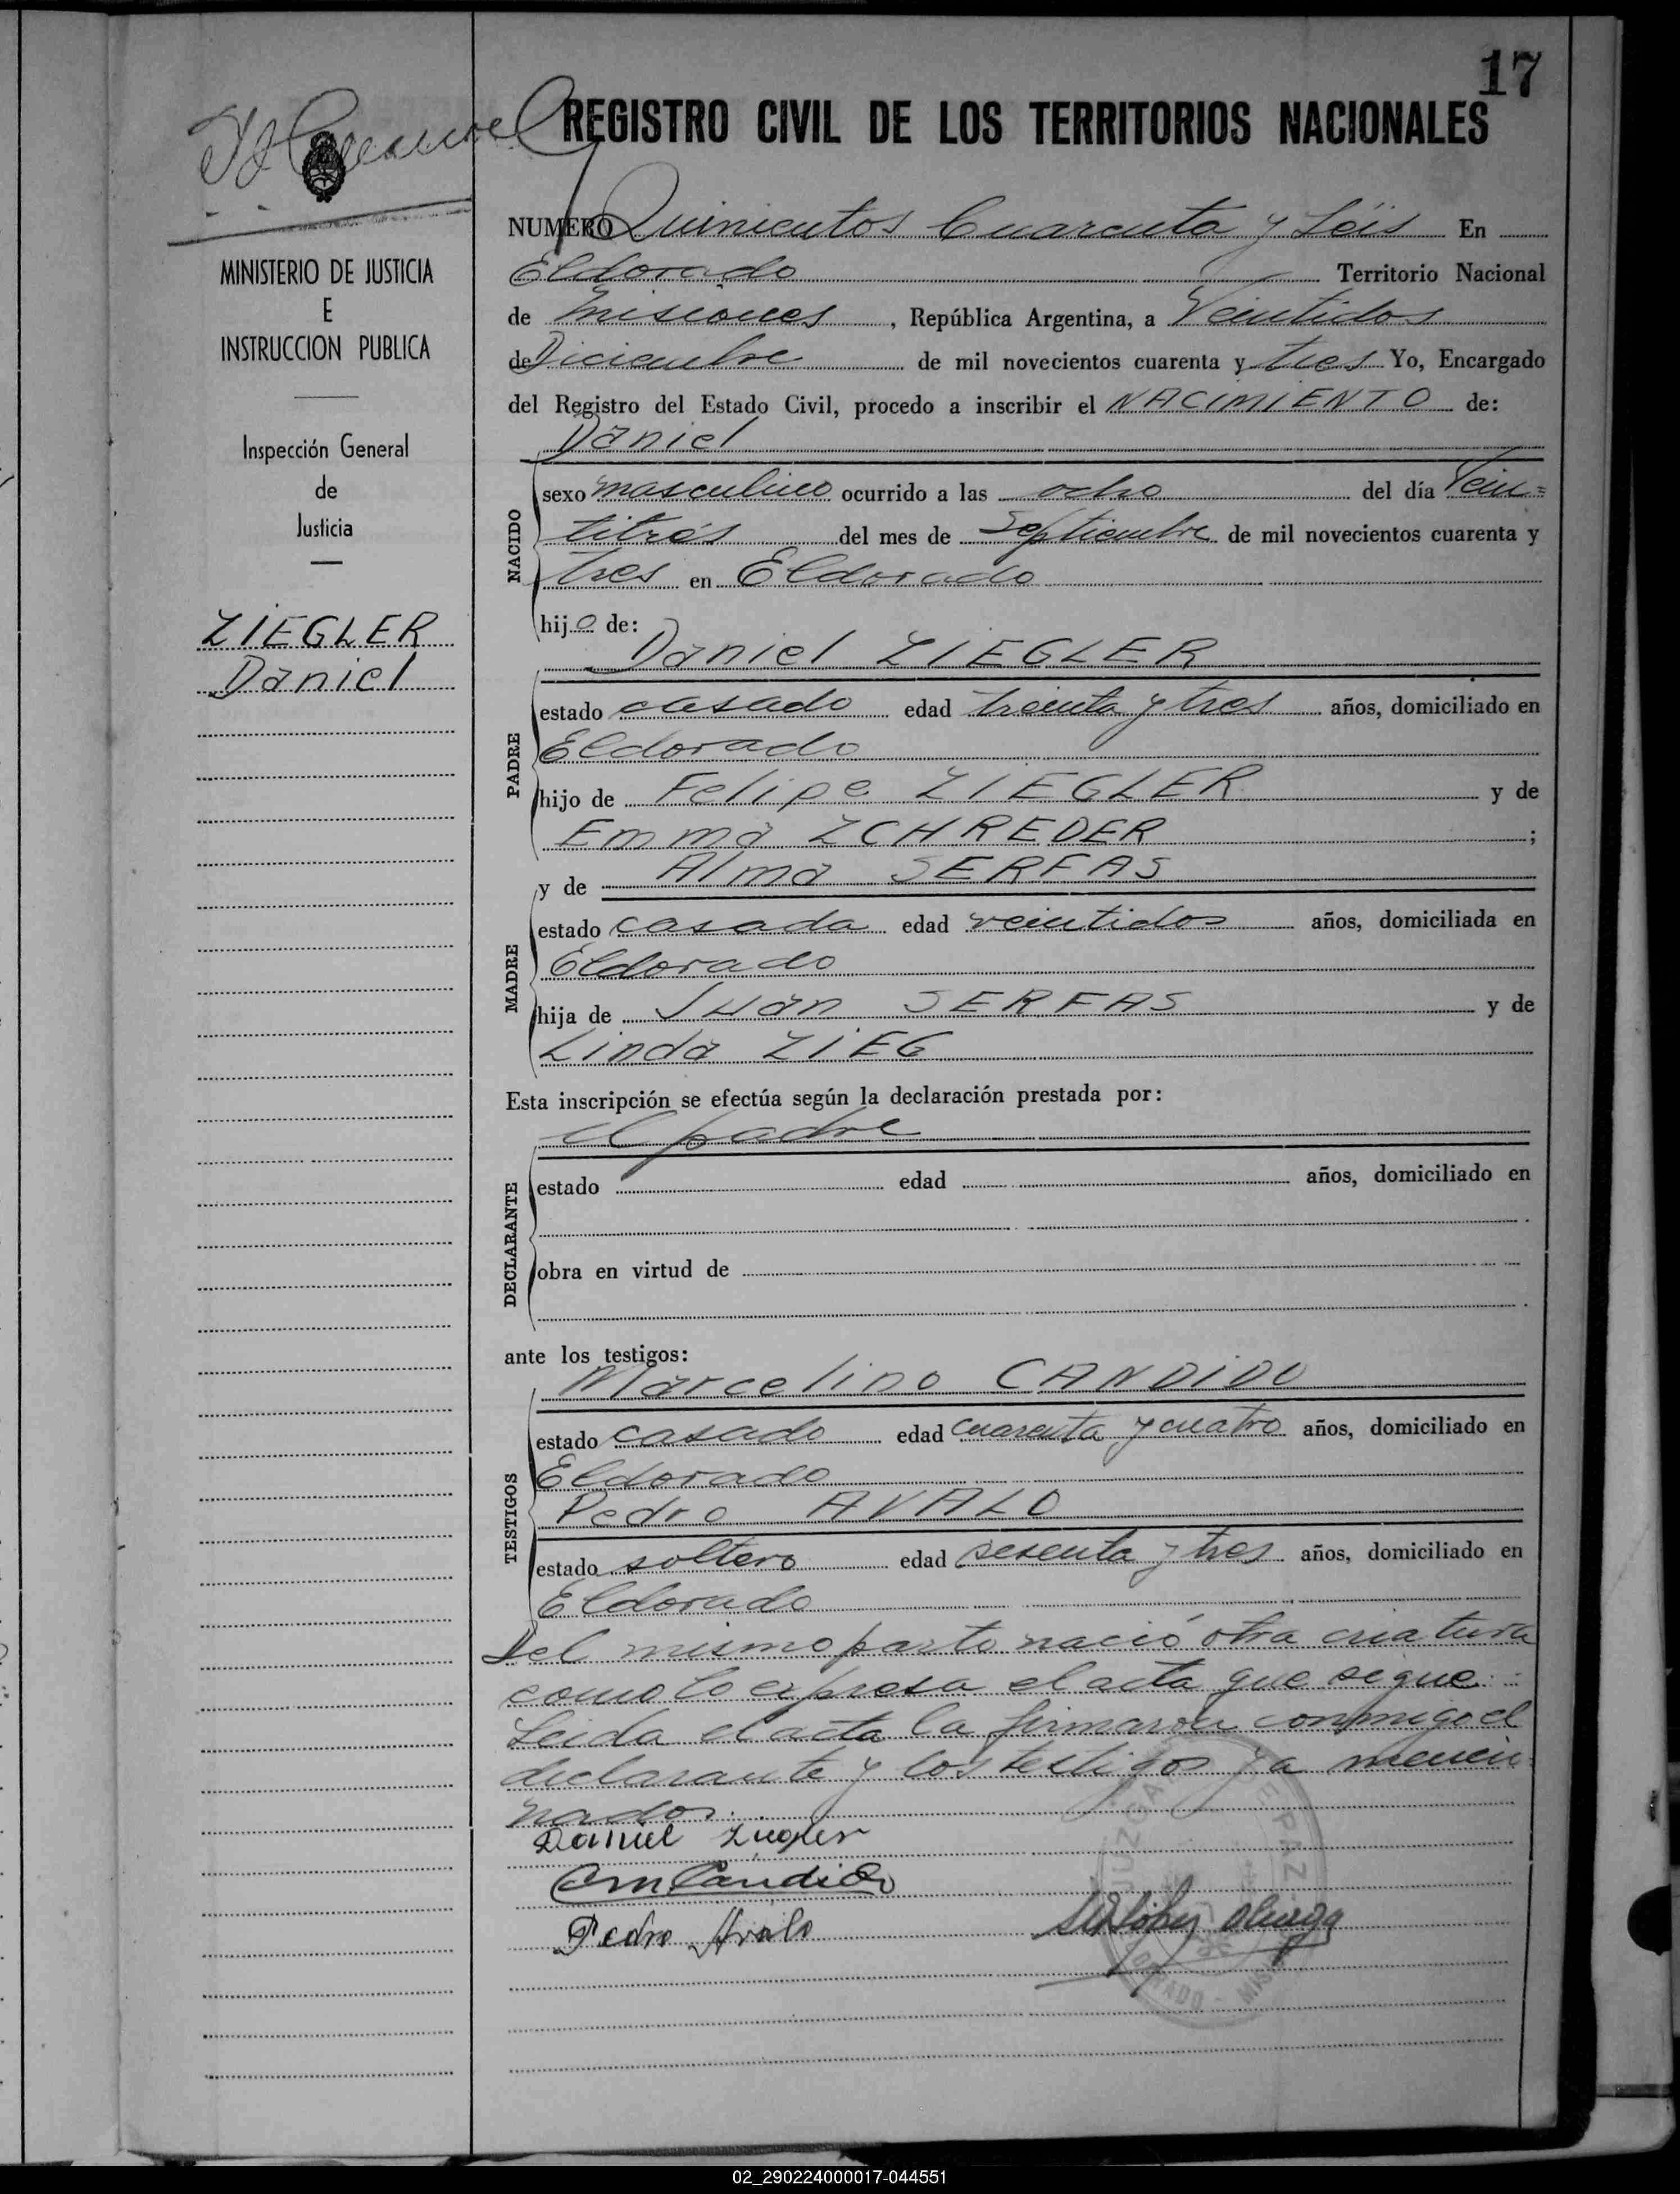 17
REGISTRO CIVIL DE LOS TERRITORIOS NACIONALES
MINISTERIO DE JUSTICIA
E
INSTRUCCION PUBLICA
Inspección General
de
Justicia
ZIEGLER
Daniel
NUMERO Quinientos Cuarenta y Séis En
Eldorado Territorio Nacional
de Misiones, República Argentina, a Veintidos
de Diciembre de mil novecientos cuarenta y tres Yo, Encargado
del Registro del Estado Civil, procedo a inscribir el NACIMIENTO de:
Daniel
NACIDO
sexo masculino ocurrido a las ocho del día Vein=
titrés del mes de Septiembre de mil novecientos cuarenta y
tres en Eldorado
hijo de:
Daniel ZIEGLER
PADRE
estado casado edad treinta y tres años, domiciliado en
Eldorado
hijo de Felipe ZIEGLER y de
Emma ZCHREDER ;
y de Alma SERFAS
MADRE
estado casada edad veintidos años, domiciliada en
Eldorado
hija de Juan SERFAS y de
Linda ZIEG
Esta inscripción se efectúa según la declaración prestada por:
el padre
DECLARANTE
estado edad años, domiciliado en
obra en virtud de
ante los testigos:
Marcelino CANDIDO
TESTIGOS
estado casado edad cuarenta y cuatro años, domiciliado en
Eldorado
Pedro AVALO
estado soltero edad sesenta y tres años, domiciliado en
Eldorado
Del mismo parto nació otra criatura
como lo expresa el acta que sigue.
Leida el acta la firmaron conmigo el
declarante y los testigos ya mencio
nados.
Daniel Ziegler
CM Candido
Pedro Avalo
02_290224000017-044551